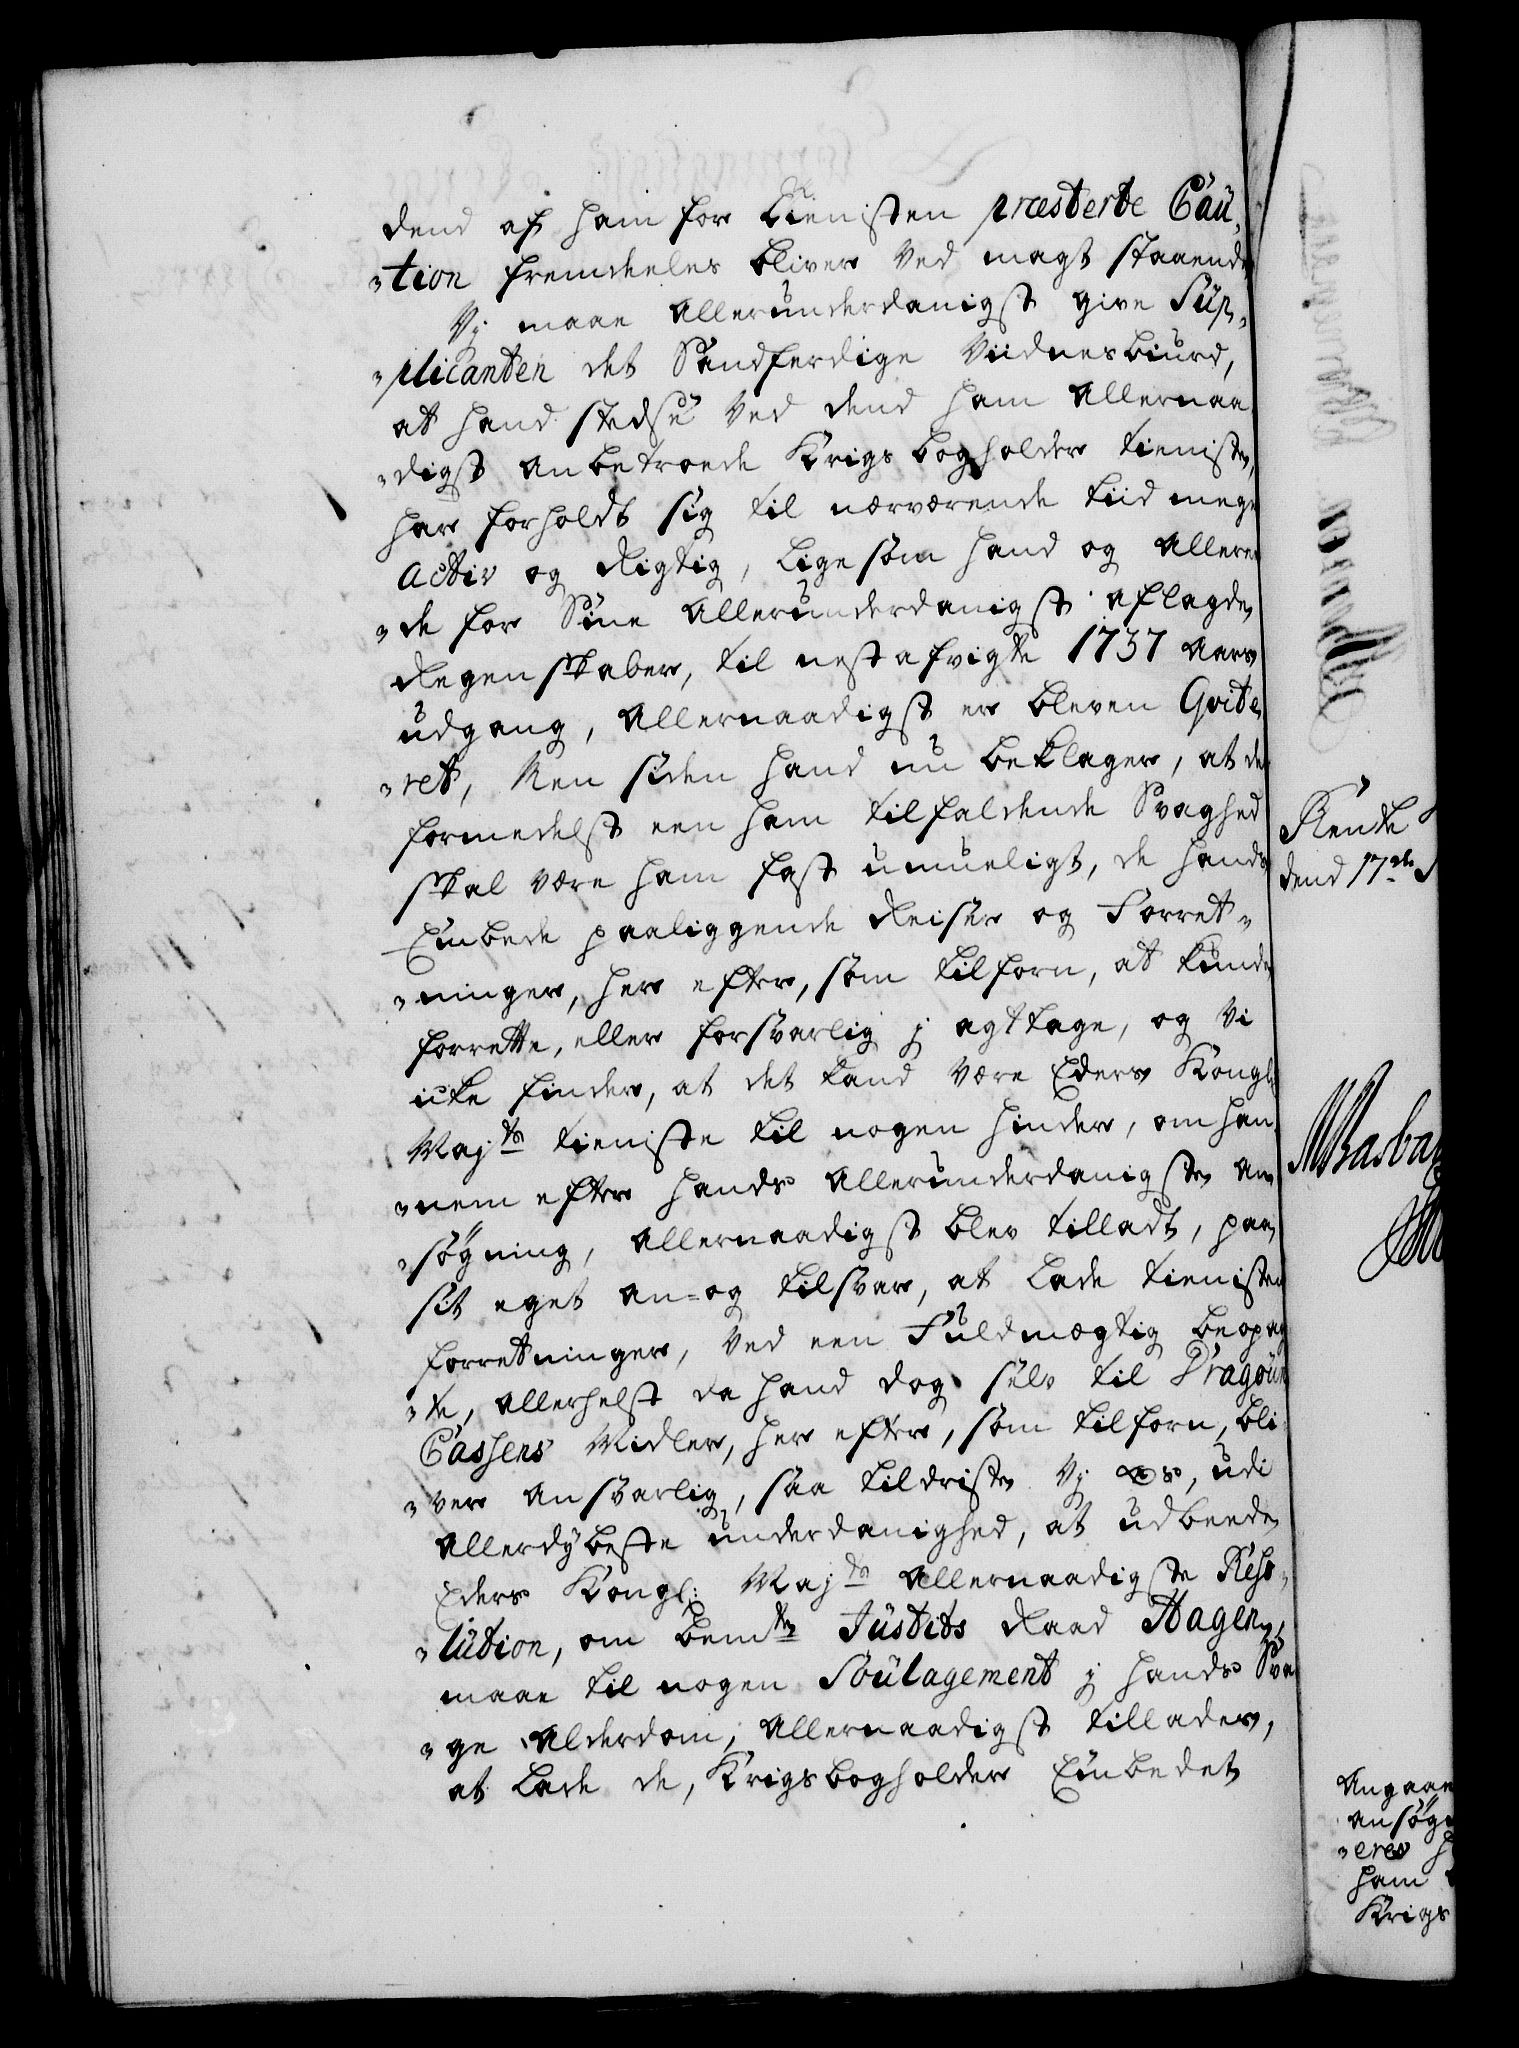 dend af ham for tienisten præsterte Cau-
-tion fremdeeles bliver ved magt staaende
Vj maae allerunderdanigst give Sup-
-plicanten det Sandferdige Viidnesbiurd,
at hand stedse ved dend ham allernaa-
-digst anbetroede Krigs bogholder tieniste,
har forholdt sig til nærværende tiid meget
activ og rigtig, ligesom hand og allere-
-de for Sine allerunderdanigst aflagde
Regenskaber, til nest afvigte 1737 Aars
udgang, allernaadigst er bleven Qvite-
-ret, Men siden hand nu beklager, at det
formedelst een ham tilfaldende Svaghed
skal være ham fast umueligt, de hands
Embede paaliggende Reiser og Forret-
-ninger, her efter, som tilforn, at kunde
forrette, eller forsvarlig j agttage, og Vi
icke finder, at det kand være Eders Kongl:
Majts tieniste til nogen hinder, om han-
-nem efter hands allerunderdanigste an-
-søgning, allernaadigst blev tilladt, paa
sit eget an- og tilsvar, at lade tienistens
forretninger, ved een Fuldmægtig beopag-
-te, allerhelst da hand dog selv til Dragoun
Cassens Midler, her efter, som tilforn, bli-
-ver ansvarlig, saa tildriste Vj os, udi
allerdybeste underdanighed, at udbeede
Eders Kongl: Majts allernaadigste Reso-
-lution, om bemte Justits Raad Hagen,
maae til nogen Soulagement j hands Sva-
-ge Alderdom, allernaadigst tillades,
at lade de, Krigsbogholder Embedet
Rente
dend 17de
Angaaen
ansøg
-eres
ham
Krigs